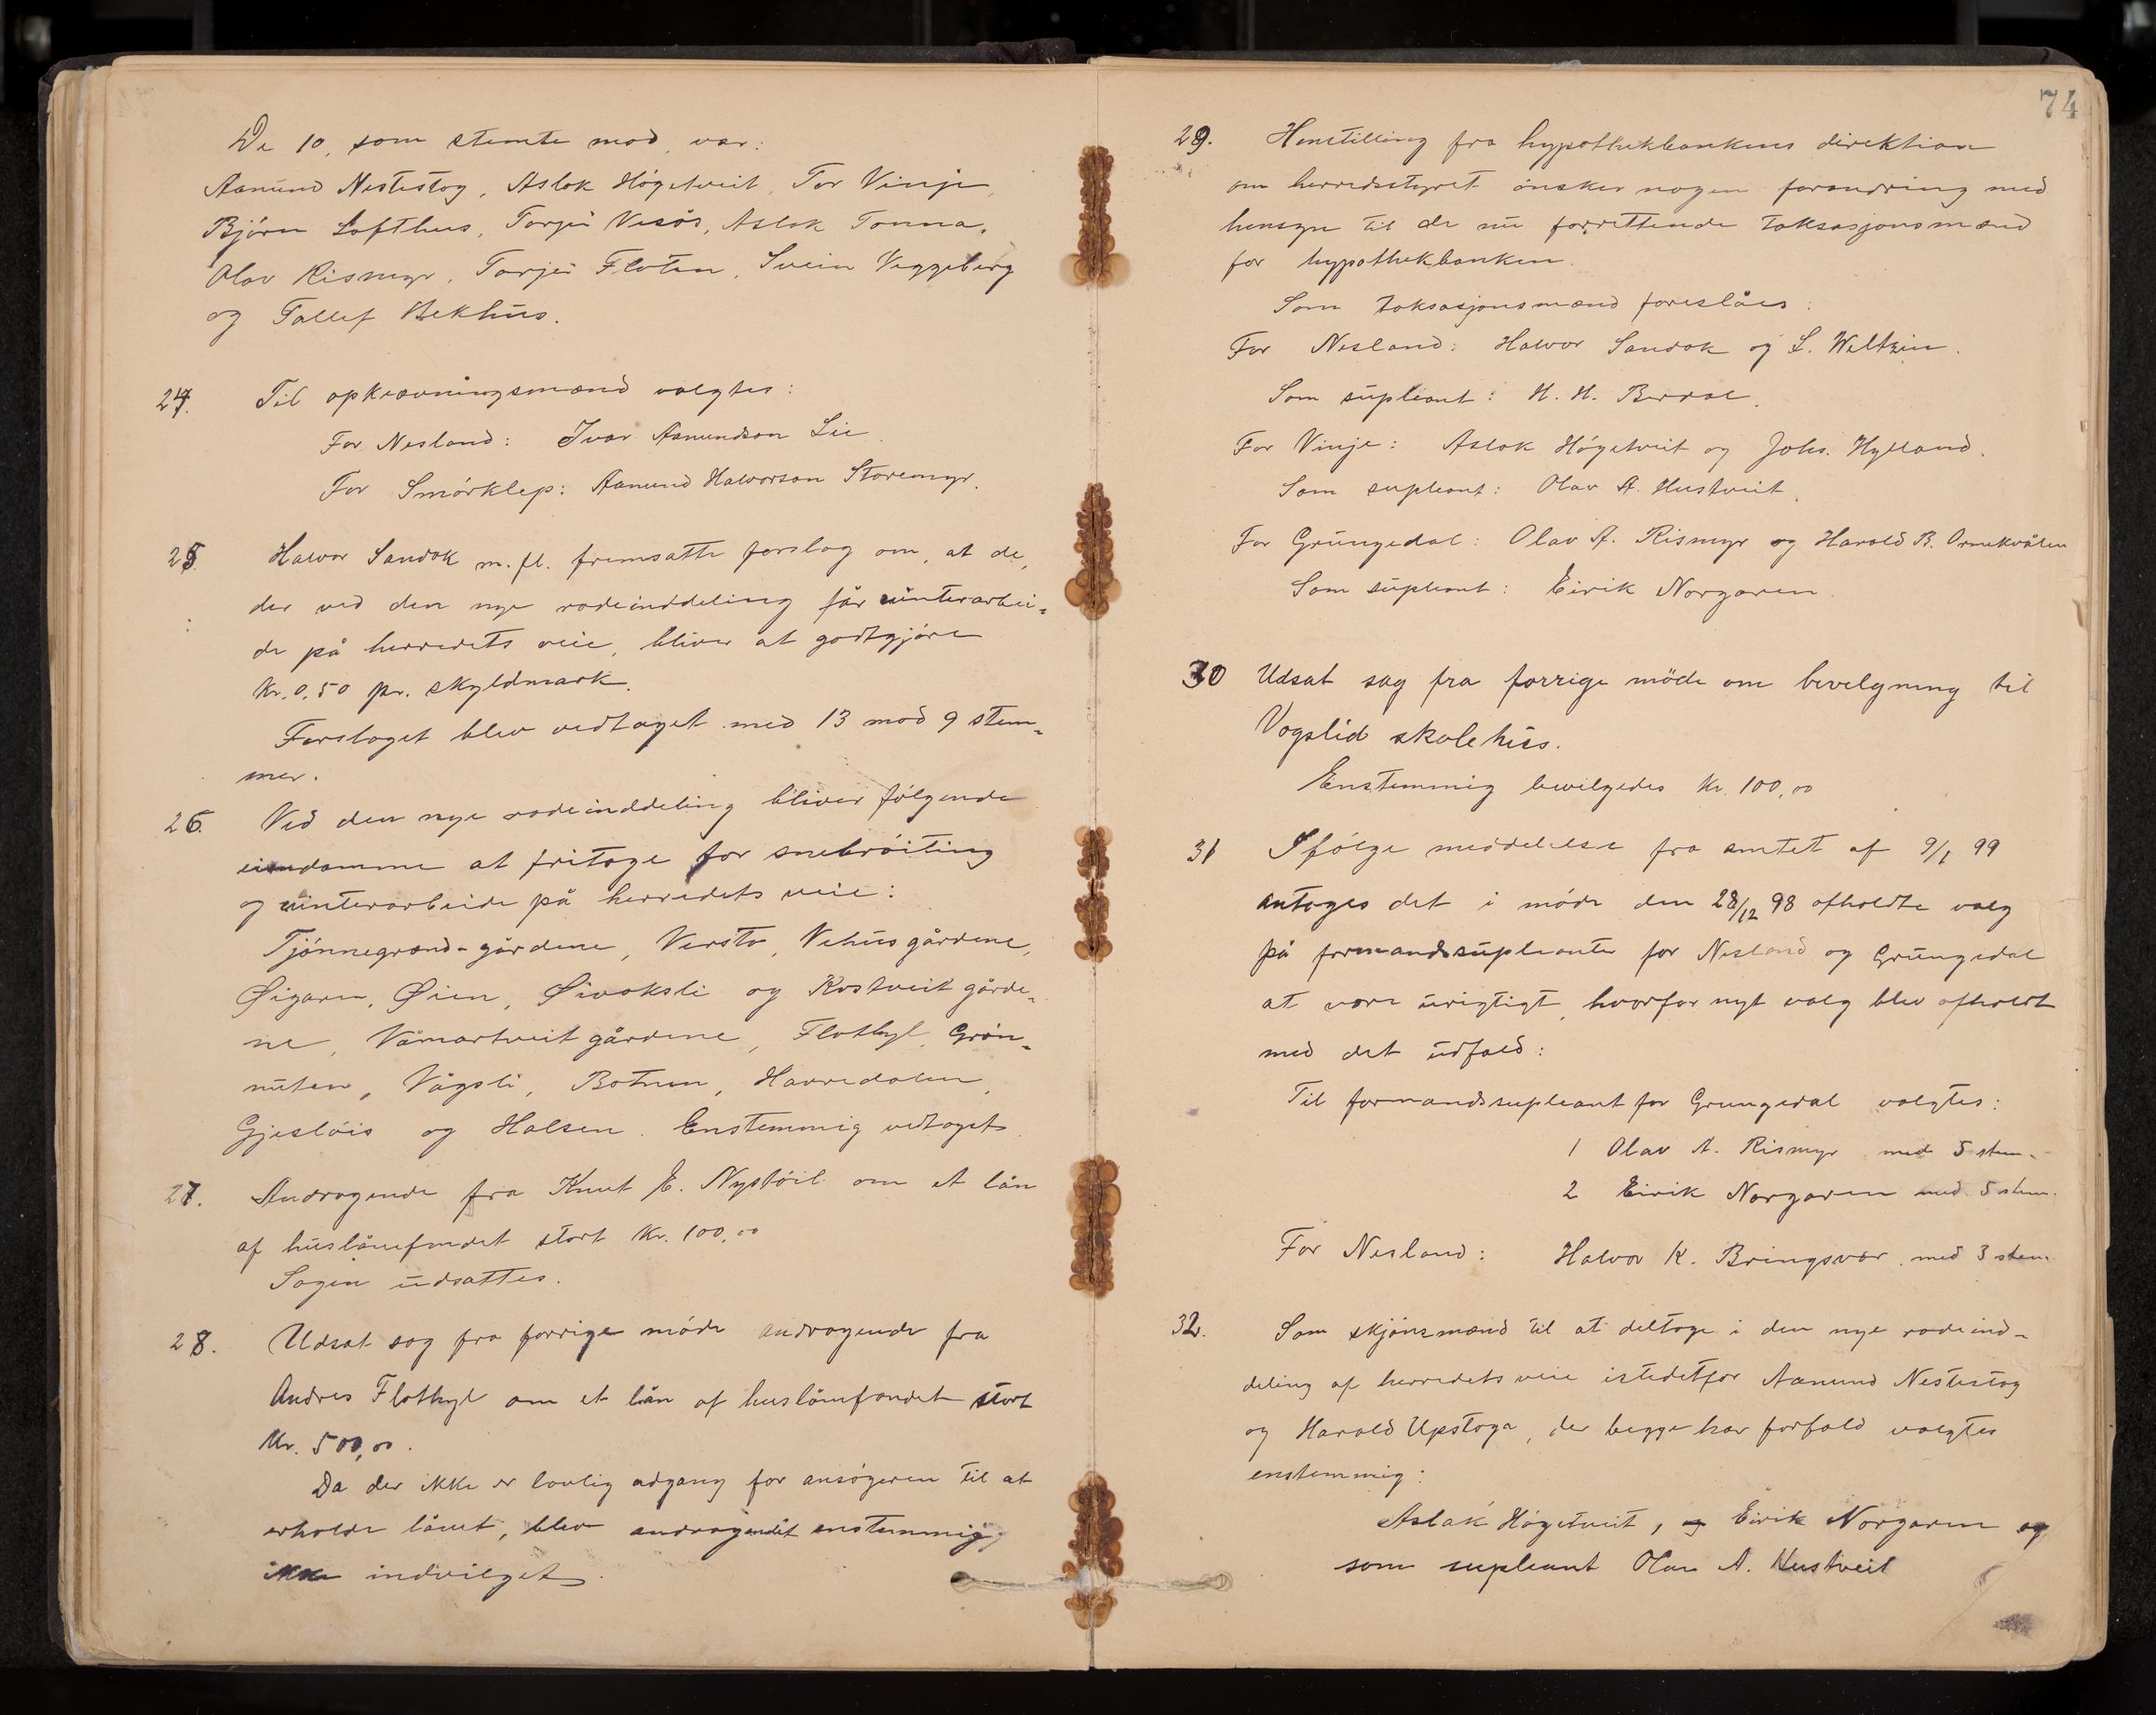 De 10, som stemte mod, var:
Aanund Nestestog, Aslak Högetveit, Tor Vinje,
Björn Lofthus, Torjei Vesås, Aslak Tonna,
Olav Rismyr, Torjei Floten, Svein Veggeberg
og Tallef Bekhus.
24. Til opkrævningsmænd valgtes:
For Nesland: Ivar Aanundson Lie.
For Smörklep: Aanund Halvorson Storemyr.
25. Halvor Sandok m. fl. fremsatte forslag om, at de,
der ved den nye rodeinddeling får vinterarbei-
de på herredets veie, bliver at godtgjöre
Kr. 0,50 pr. skyldmark.
Forslaget blev vedtaget med 13 mod 9 stem-
mer.
26. Ved den nye rodeinddeling bliver fölgende
eiendomme at fritage for snebröiting
og vinterarbeide på herredets veie:
Tjönnegrend-gårdene, Versto, Nehus gårdene,
Øigaren, Øien, Øivoksli og Kostveit gårde-
ne, Våmartveit gårdene, Flothyl, Grön-
nuten, Vågsli, Botnen, Havredalen,
Gjeslöis og Halsen. Enstemmig vedtaget.
27. Andragende fra Knut E. Nystöil om et lån
af huslånefondet stort Kr. 100,00
Sagen udsattes.
28. Udsat sag fra forrige möde andragende fra
Andres Flothyl om et lån af huslånefondet stort
Kr. 500,00.
Da der ikke er lovlig adgang for ansögeren til at
erholde lånet, blev andragendet enstemmig
ikke indvilget.
74
29. Henstilling fra hypothekbankens direktion
om herredsstyret önsker nogen forandring med
hensyn til de nu forrettende taksasjonsmænd
for hypothekbanken.
Som taksasjonsmænd foreslåes:
For Nesland: Halvor Sandok og L. Weltzin.
Som supleant: H. H. Berdal.
For Vinje: Aslak Högetveit og Johs. Hylland.
Som supleant: Olav A. Hustveit.
For Grungedal: Olav A. Rismyr og Harald B. Ornekvålen
Som supleant: Eirik Norgaren.
30 Udsat sag fra forrige möde om bevelgning til
Vogslid skolehus.
Enstemmig bevilgedes Kr. 100,00
31 Ifölge meddelelse fra amtet af 9/1 99
antoges det i möde den 28/12 98 afholdte valg
på formandssupleanter for Nesland og Grungedal
at være urigtigt, hvorfor nyt valg blev afholdt
med det udfald:
Til formandssupleant for Grungedal valgtes:
1 Olav A. Rismyr med 5 stem.
2 Eirik Norgaren med 5 stem.
For Nesland: Halvor K. Bringsvær med 3 stem.
32. Som skjönsmænd til at deltage i den nye rodeind-
deling af herredets veie istedetfor Aanund Nestestog
og Harald Upstoga, der begge har forfald valgtes
enstemmig:
Aslak Högetveit, og Eirik Norgaren og
som supleant Olav A. Hustveit